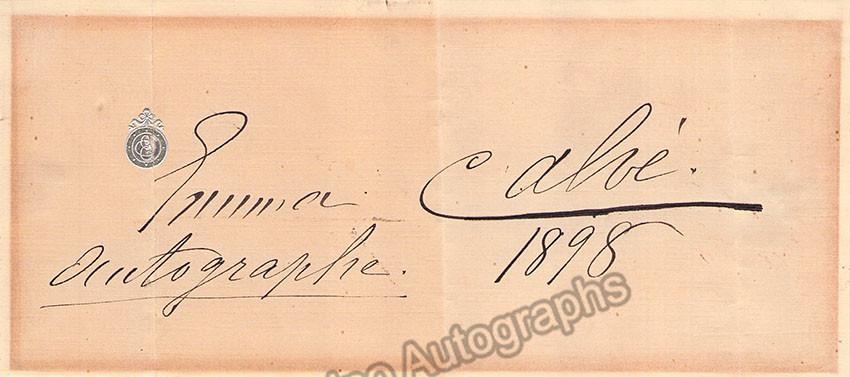 Emma Calvé.
autographe. 1898
Autographs